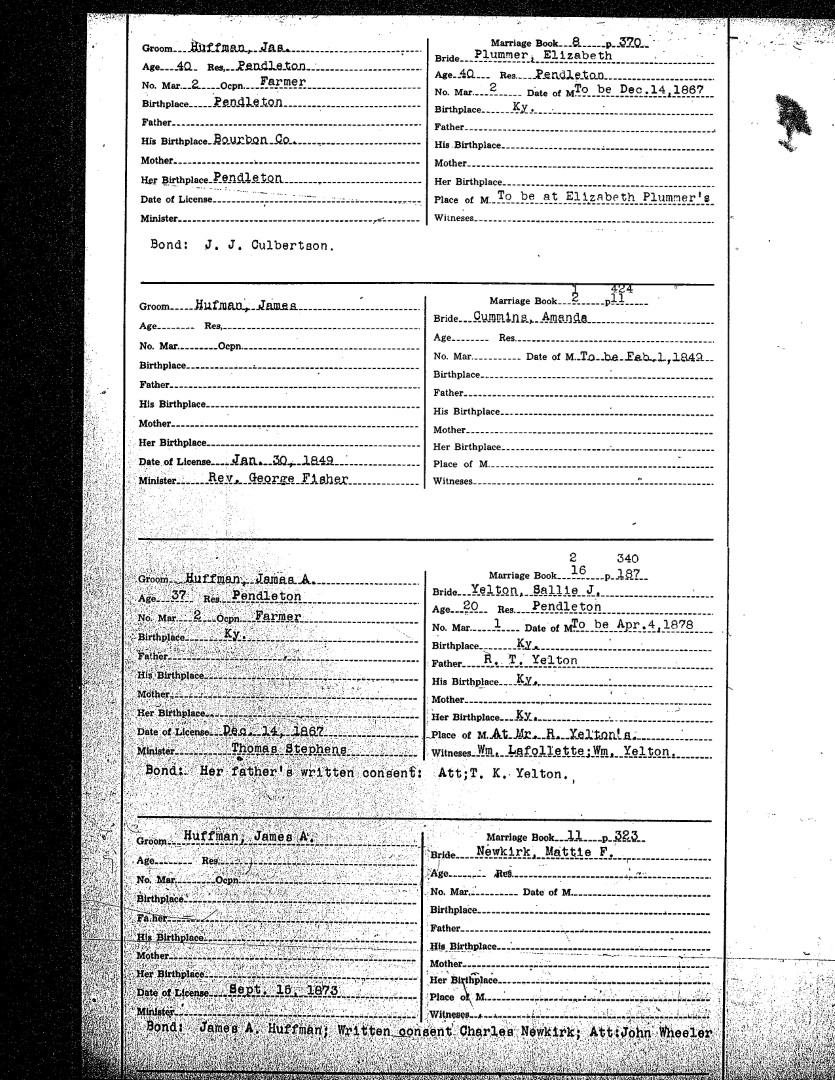 Groom Huffman, Jas.
Age 40 Res. Pendleton
No. Mar. 2 Ocpn. Farmer
Birthplace Pendleton
Father
His Birthplace Bourbon Co.
Mother
Her Birthplace Pendleton
Date of License
Minister
Marriage Book 8 p. 370
Bride Plummer, Elizabeth
Age 40 Res. Pendleton
No. Mar. 2 Date of M To be Dec.14,1867
Birthplace Ky.
Father
His Birthplace
Mother
Her Birthplace
Place of M. To be at Elizabeth Plummer's
Witneses
Bond: J. J. Culbertson.
Groom Hufman, James
Age Res.
No. Mar. Ocpn.
Birthplace
Father
His Birthplace
Mother
Her Birthplace
Date of License Jan. 30, 1849
Minister Rev. George Fisher
1 424
Marriage Book 2 p 11
Bride Cummins, Amanda
Age Res.
No. Mar. Date of M. To be Feb.1,1849
Birthplace
Father
His Birthplace
Mother
Her Birthplace
Place of M.
Witneses
Groom Huffman, James A.
Age 37 Res. Pendleton
No. Mar. 2 Ocpn. Farmer
Birthplace Ky.
Father
His Birthplace
Mother
Her Birthplace
Date of License Dec. 14, 1867
Minister Thomas Stephens
2 340
Marriage Book 16 p. 187
Bride Yelton, Sallie J.
Age 20 Res. Pendleton
No. Mar. 1 Date of M To be Apr.4,1878
Birthplace Ky.
Father R. T. Yelton
His Birthplace Ky.
Mother
Her Birthplace Ky.
Place of M. At Mr. R. Yelton's.
Witneses Wm. Lafollette;Wm. Yelton.
Bond: Her father's written consent: Att;T. K. Yelton.
Groom Huffman, James A.
Age Res.
No. Mar. Ocpn.
Birthplace
Father
His Birthplace
Mother
Her Birthplace
Date of License Sept. 15, 1873
Minister
Marriage Book 11 p. 323
Bride Newkirk, Mattie F.
Age Res.
No. Mar. Date of M.
Birthplace
Father
His Birthplace
Mother
Her Birthplace
Place of M.
Witneses
Bond: James A. Huffman; Written consent Charles Newkirk; Att:John Wheeler